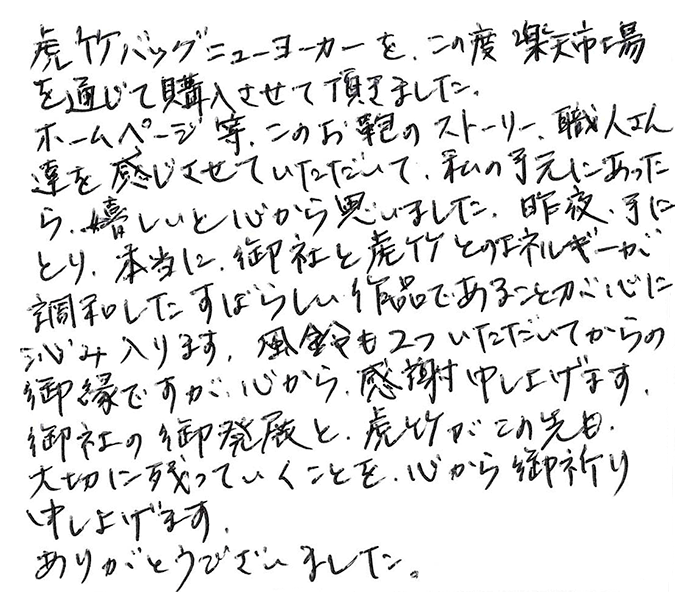 虎竹バッグニューヨーカーを、この度楽天市場
を通じて購入させて頂きました。
ホームページ等、このお鞄のストーリー、職人さん
達を感じさせていただいて、私の手元にあった
ら、嬉しいと心から思いました。昨夜、手に
とり、本当に、御社と虎竹とのエネルギーが
調和したすばらしい作品であることが心に
沁み入ります。風鈴も2ついただいてからの
御縁ですが、心から、感謝申し上げます。
御社の御発展と、虎竹がこの先も、
大切に残っていくことを、心から御祈り
申し上げます。
ありがとうございました。